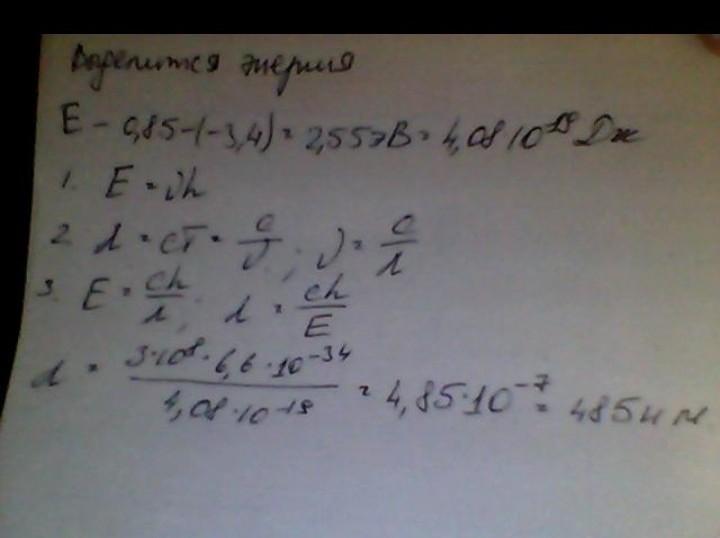 Выделится энергия
E - 0,85-(-3,4) = 2,55эВ = 4,08 10⁻¹⁹ Дж
1. E = νh
2. λ = cT = c/ν ; ν = c/λ
3. E = ch/λ ; λ = ch/E
λ = 3·10⁸·6,6·10⁻³⁴/4,08·10⁻¹⁹ = 4,85·10⁻⁷ = 485 нм